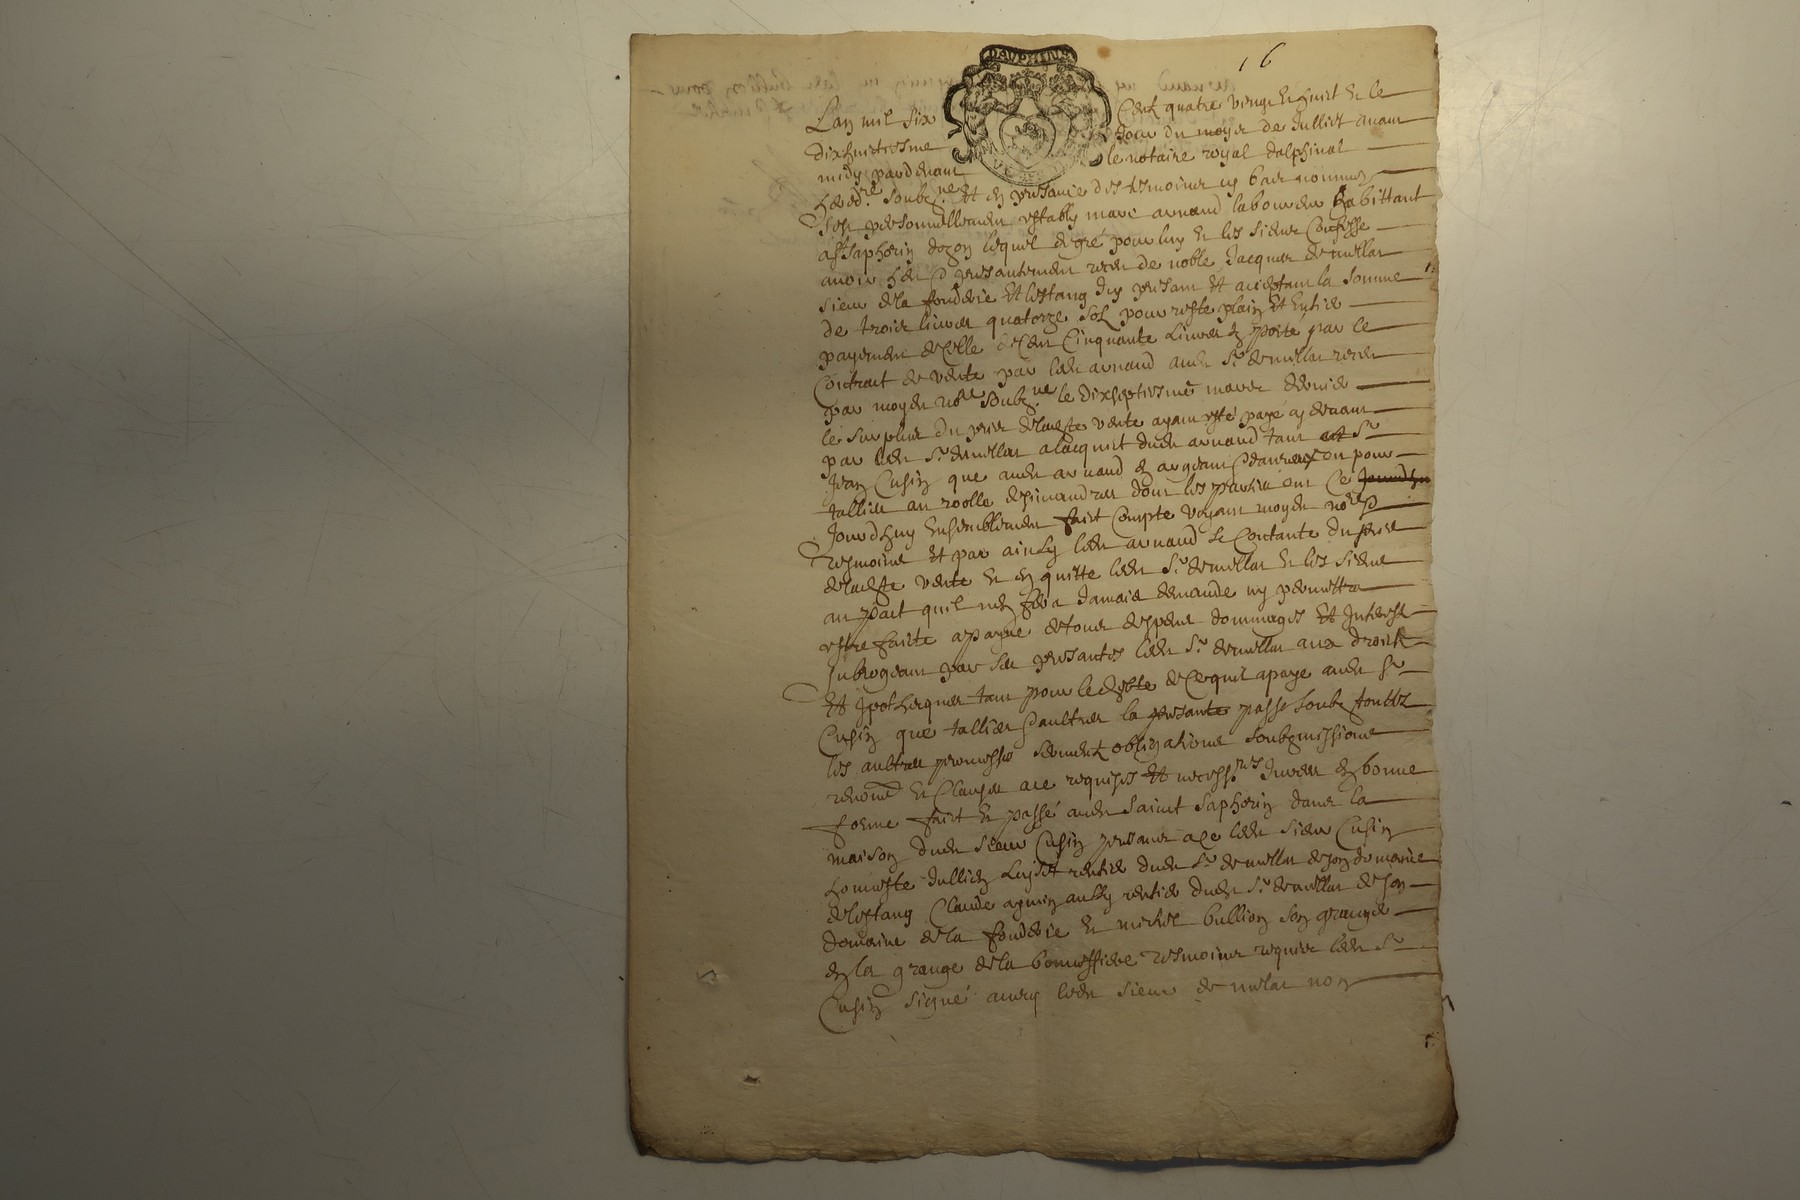 DAUPHINE
16
Lan mil six Cent quatre vingt et huict et le
dixhuictiesme Jour du moys de Julliet avant
midy pardevant le notaire royal dalphinal
hered.re soubz.ne et en presance des tesmoins cy bas nommes
sest personnellement estably marc arnaud laboureur habittant
a st saphorin dozon lequel de gré pour luy et les siens Confesse
avoir heu presantement receu de noble Jacques demellar
sieur de la fonderie et lestang icy presant et acceptant la somme
de trois livres quatorze solz pour reste plain et entier
payement de celle de Cent Cinquante livres porté par le
Contract de vente par ledit arnaud audit Sr. demellar receu
par moydit no.re soubz.ne le dixseptiesme mars dernier
le surplus du prix de ladicte vente ayant esté payé cy devant
par ledit Sr. demellar a lacquit dudit arnaud tant Sr
Jean Cusin que audit arnaud en argeant ou pour
tallies au roolle de dont les parties ont Ce Jourdhuy
Jourdhuy ensemblement faict Compte voyant moydit no.re
tesmoins et par ainsy ledit arnaud se Contante du prix
de ladicte vente et en quitte ledit Sr. demellar et les siens
au pact quil nen fera Jamais demande ny permettra
estre faicte a payne de tous despens dommages et Interestz
subrogeant par ces presantes ledit Sr. demellar aux droictz
et Ipotheques tant pour le debte de ce quil a paye audit Sr
Cusin que tallies la presante passé soubz touttes
les aultres promesses serment obligations soubzmissions
renon.on et Clauses ace requises et necess.res Inserer en bonne
forme faict et passé audit Saint Saphorin dans la
maison dudit sieur Cusin presants ace ledit sieur Cusin
honneste Jullien rentier dudit Sr. demellar de son domaine
de lestang Claude aussy rentier dudit Sr. demellar de son
domaine de la fonderie et michel bullion son granger
en la grange de la tesmoins requis ledit Sr
Cusin signé avecq ledit sieur demelar non